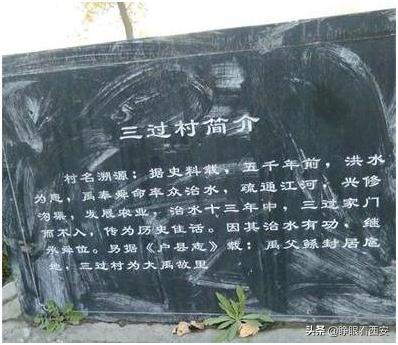 三过村简介
村名溯源：据史料载，五千年前，洪水
为患，禹奉舜命率众治水，疏通江河，兴修
沟渠，发展农业，治水十三年中，三过家门
而不入，传为历史佳话。因其治水有功，继
承舜位。另据《户县志》载：禹父鲧封居扈
地，三过村为大禹故里
头条@睁眼看西安